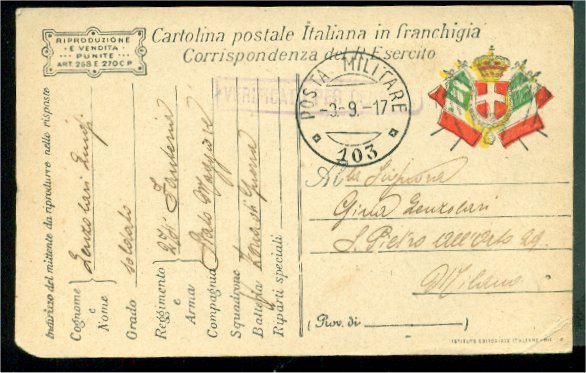 RIPRODUZIONE
E VENDITA
PUNITE
ART. 268 E 270 C.P.
Cartolina postale Italiana in franchigia
Corrispondenza del R. Esercito
VERIFICAT
POSTA MILITARE
-3-9.-17
103
Indirizzo del mittente da riprodurre nelle risposte
Cognome e Nome
Luigi
Grado soldato
Reggimento e Arma Fanteria
Compagnia Stato Maggiore
Squadrone
Batteria Zona di Guerra
Riparti speciali
Alla Signora
Gina
S. Pietro all'Orto 29
Milano
(Prov. di)
ISTITUTO EDITORIALE ITALIANO